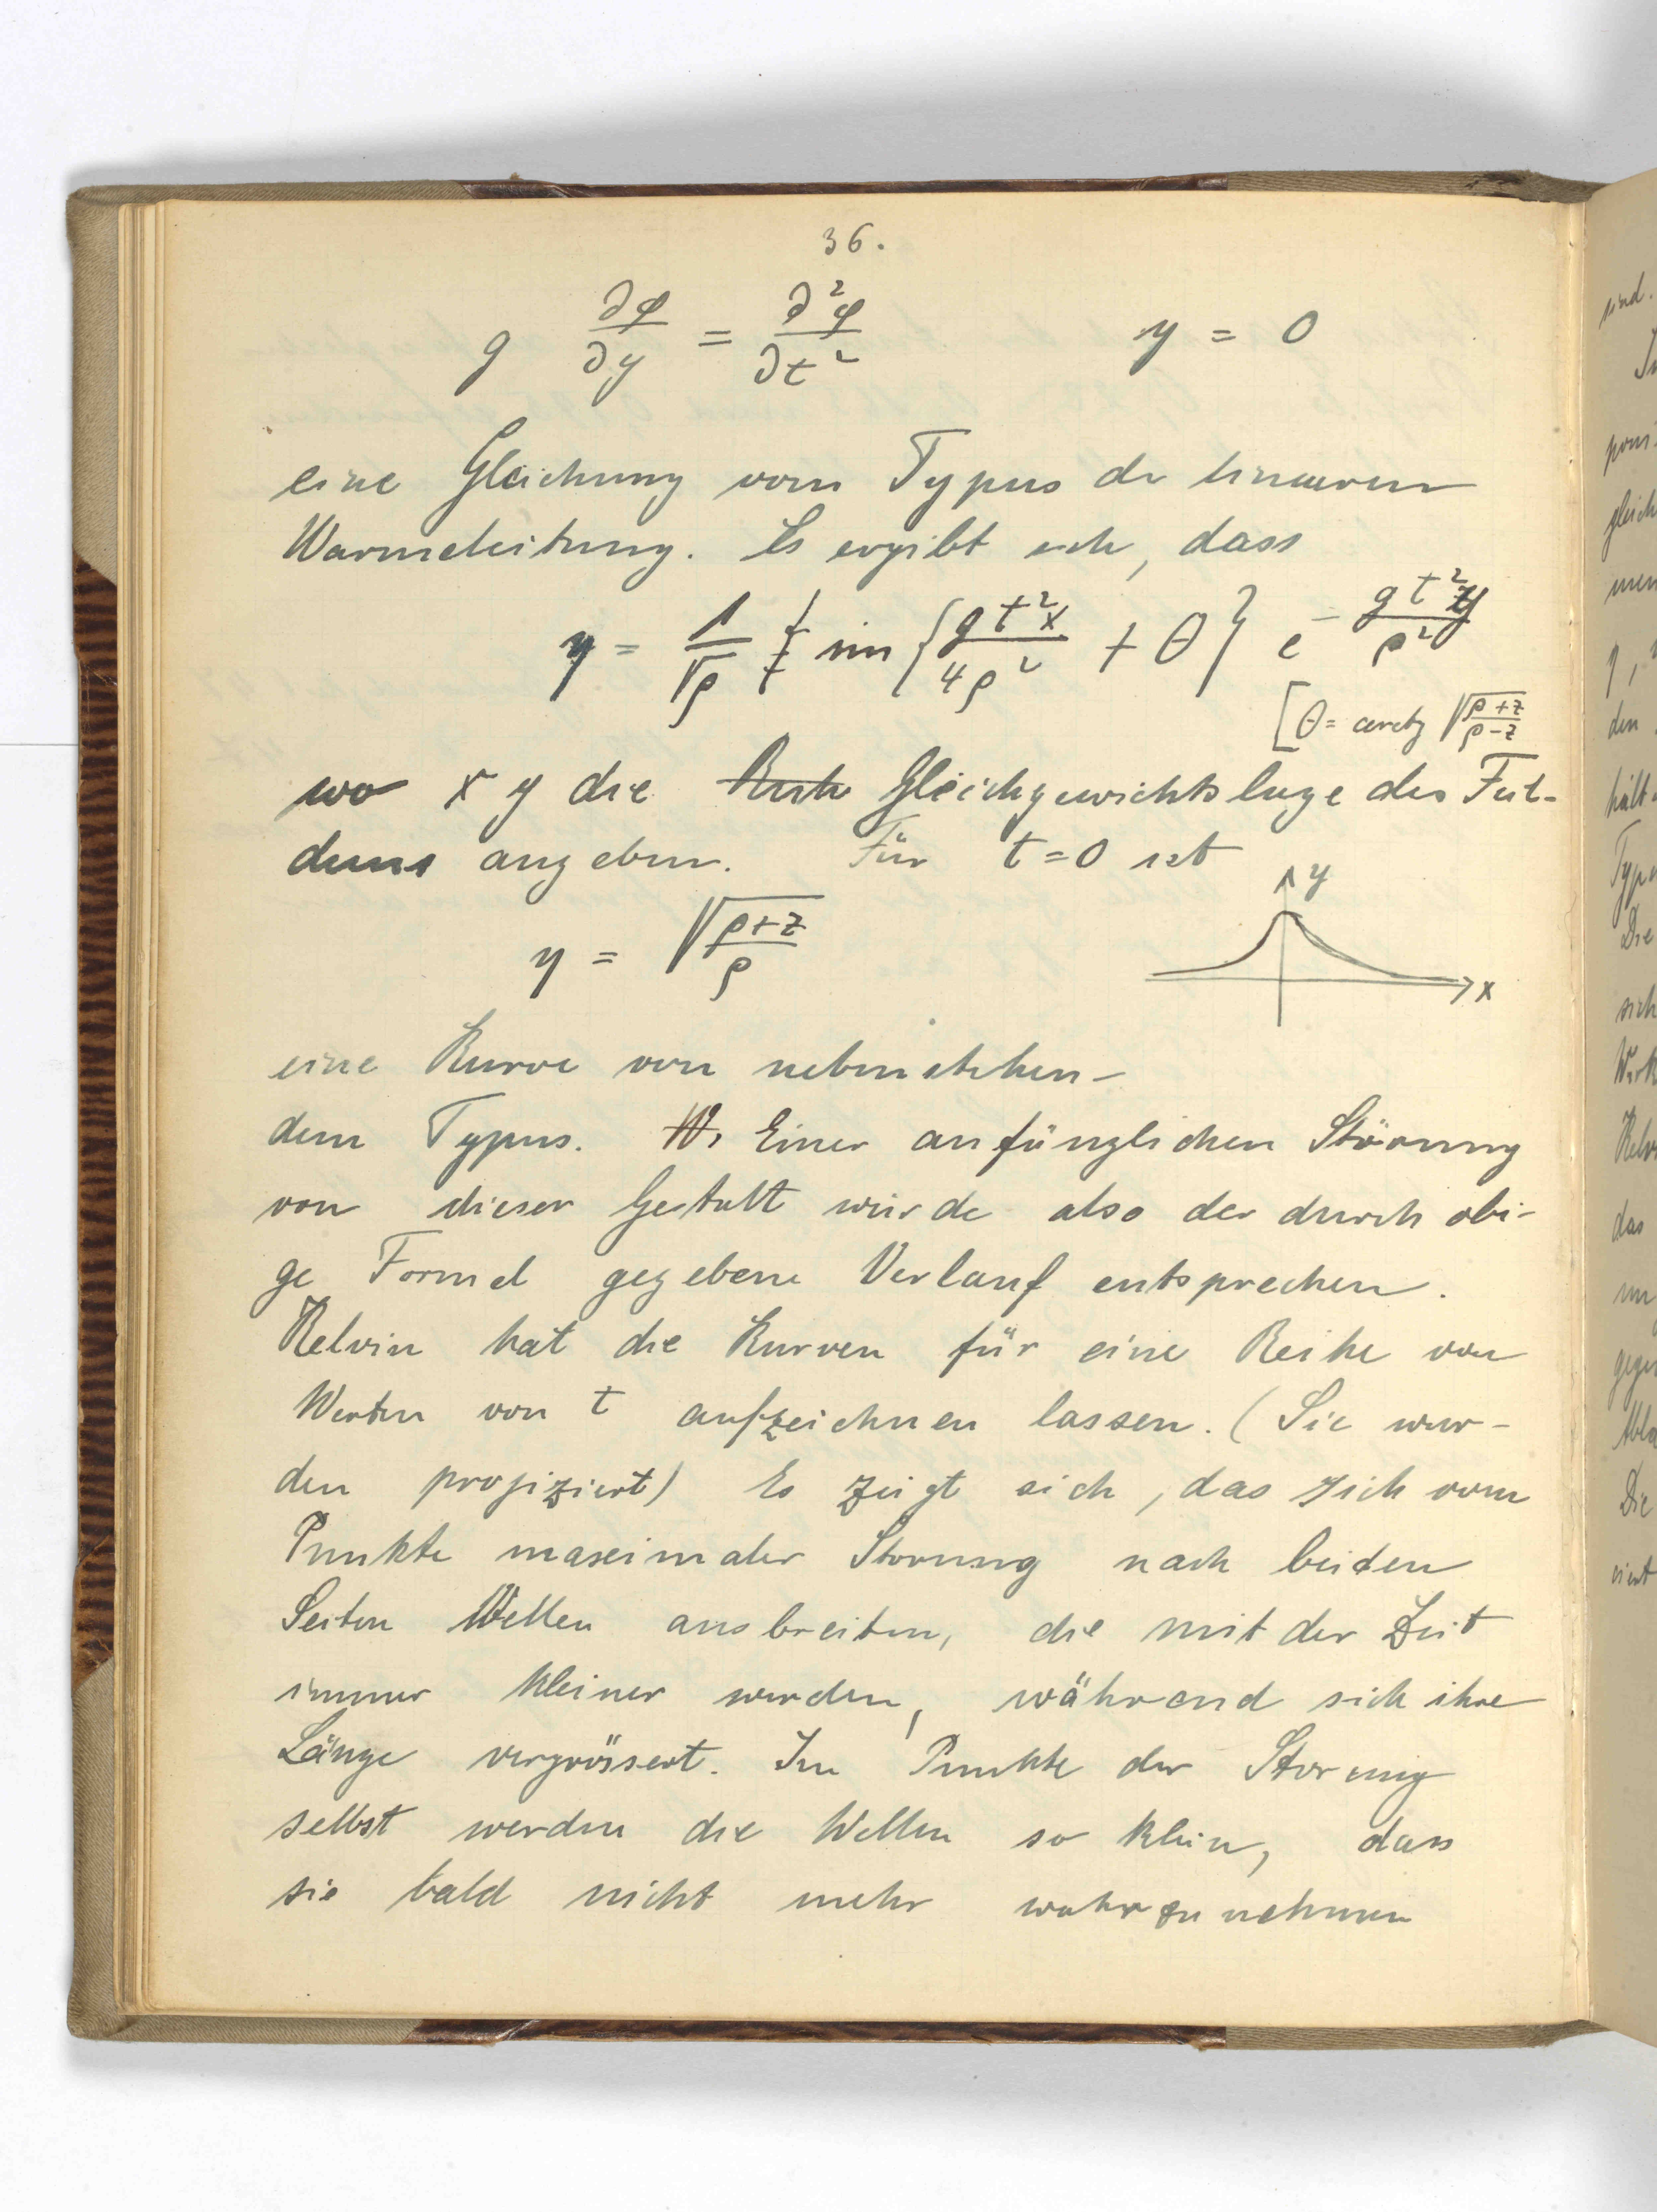 36.
g ∂φ/∂y = ∂²φ/∂t² y = 0
eine Gleichung vom Typus der linearen
Warmeleitung. Es ergibt sich, dass
y = 1/√ρ sin {gt²x/4ρ² + θ} e^(-gt²y/ρ²)
[θ = arctg √(ρ+z/ρ-z)
wo x y die Gleichgewichtslage des Fa-
dens angeben. Für t=0 ist
y
y = √(ρ+z)/ρ
x
eine Kurve von nebenstehen-
dem Typus. Einer anfänglichen Störung
von dieser Gestalt würde also der durch obi-
ge Formel gegebene Verlauf entsprechen.
Kelvin hat die Kurven für eine Reihe von
Werten von t aufzeichnen lassen. (Sie wur-
den projiziert) Es zeigt sich, das sich vom
Punkte maximaler Storung nach beiden
Seiten Wellen ausbreiten, die mit der Zeit
immer kleiner werden, während sich ihre
Länge vergrössert. Im Punkte der Storung
selbst werden die Wellen so klein, dass
sie bald nicht mehr wahrzunehmen